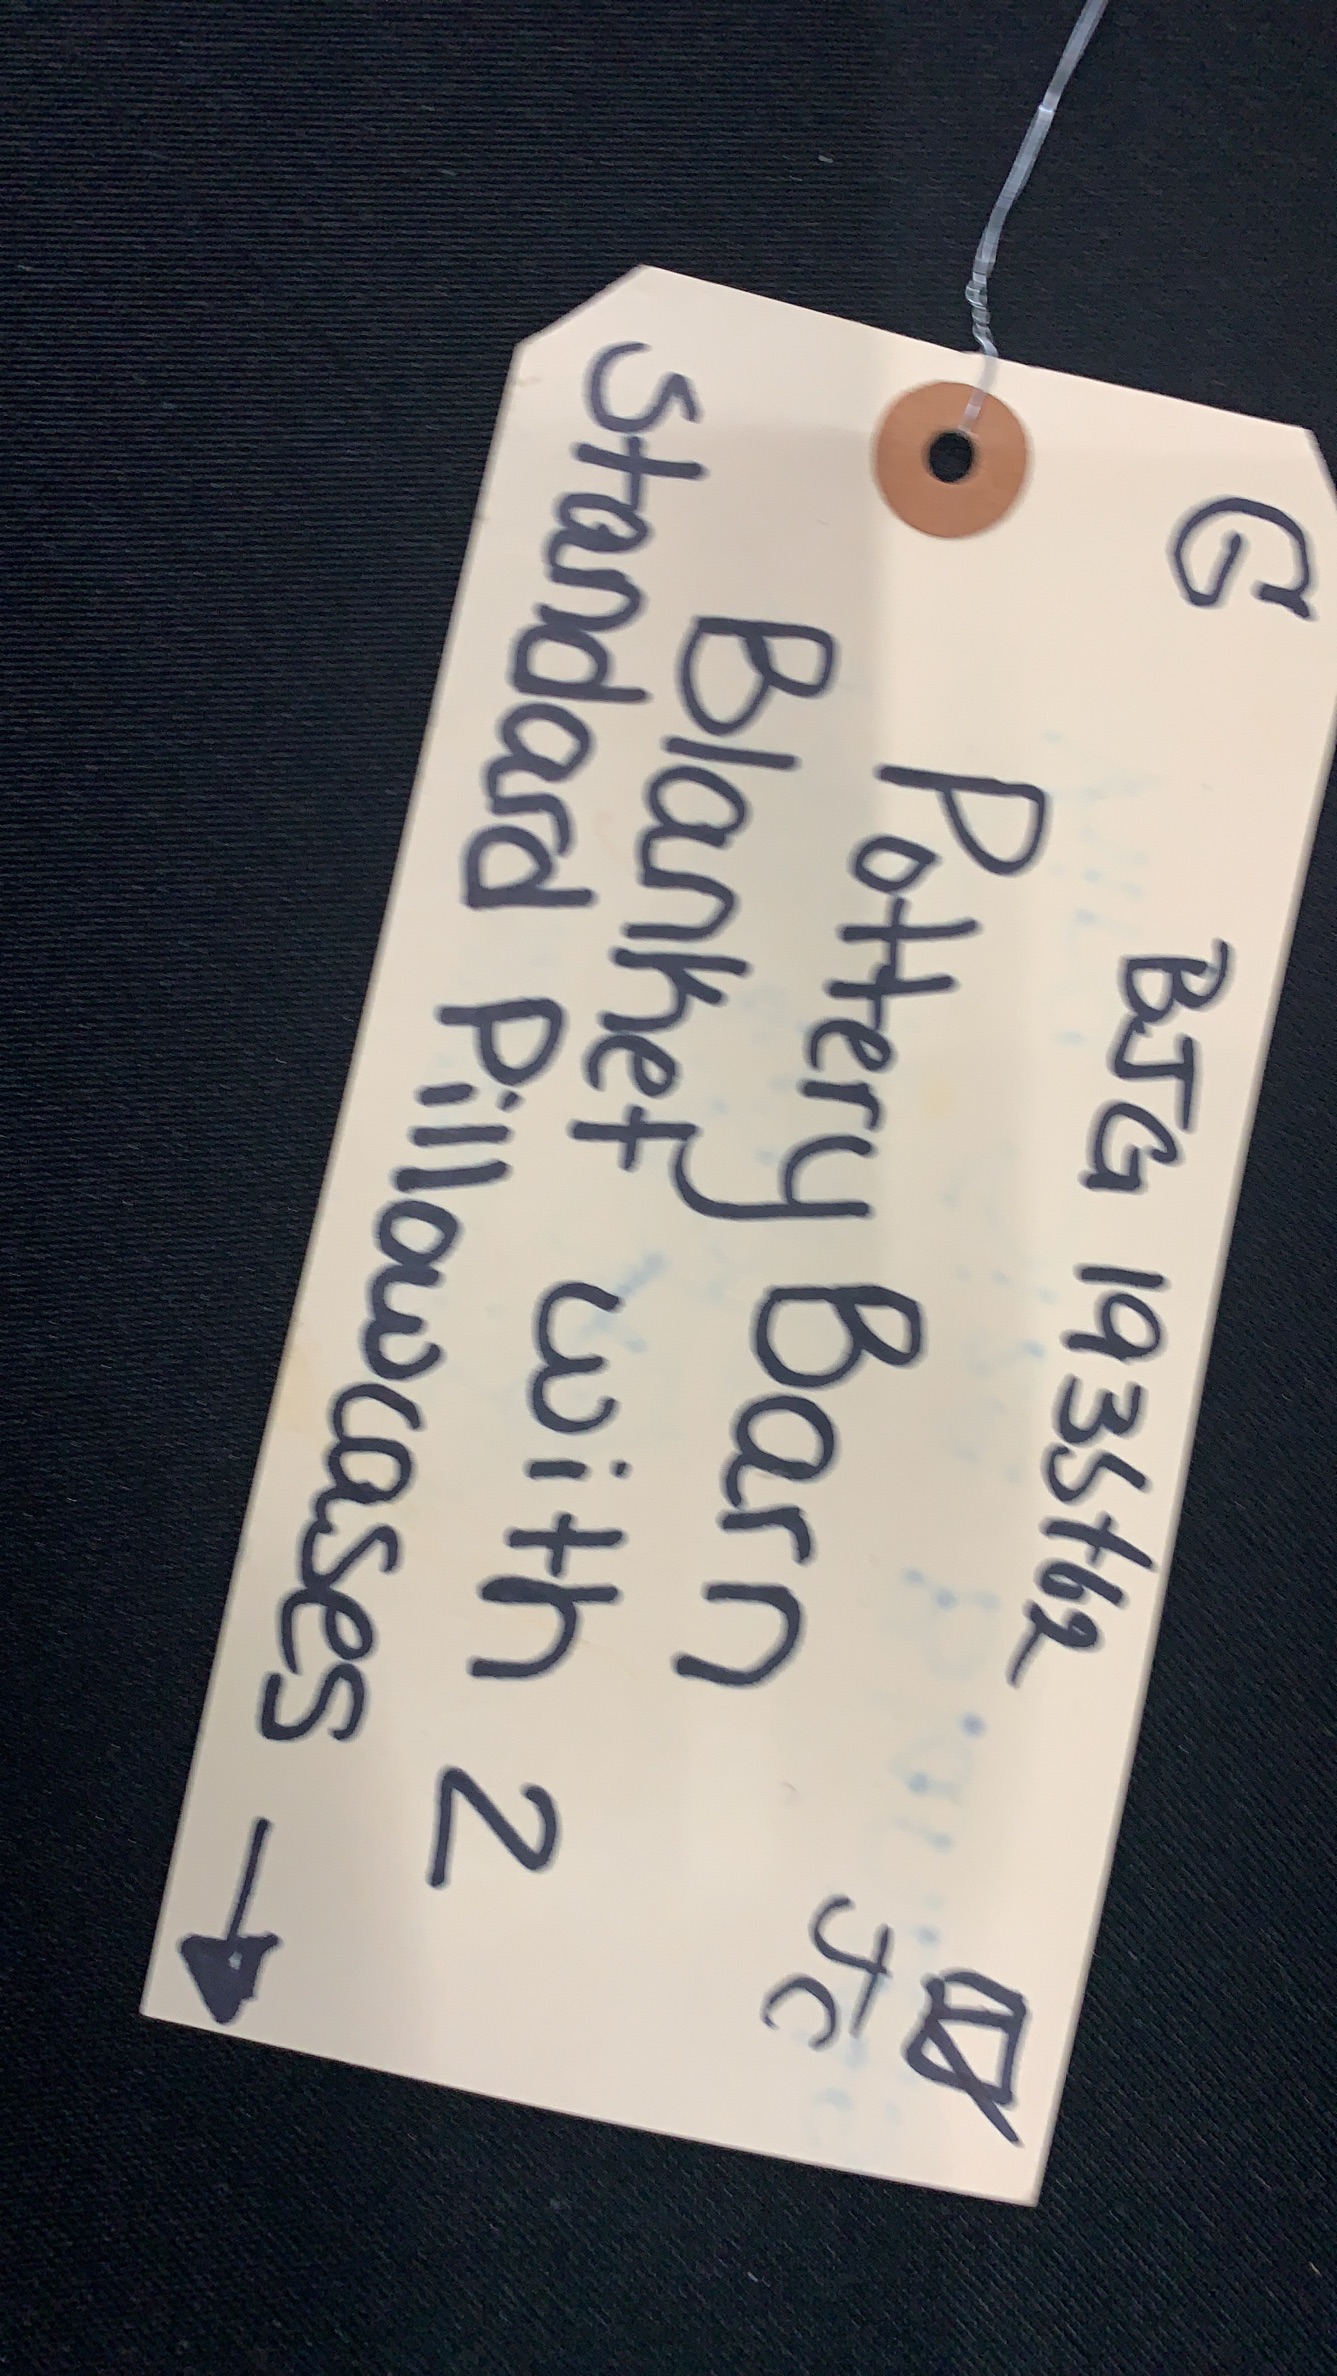 G
BJG 1935+62
Pottery Barn
Blanket with 2
Standard Pillowcases
JC